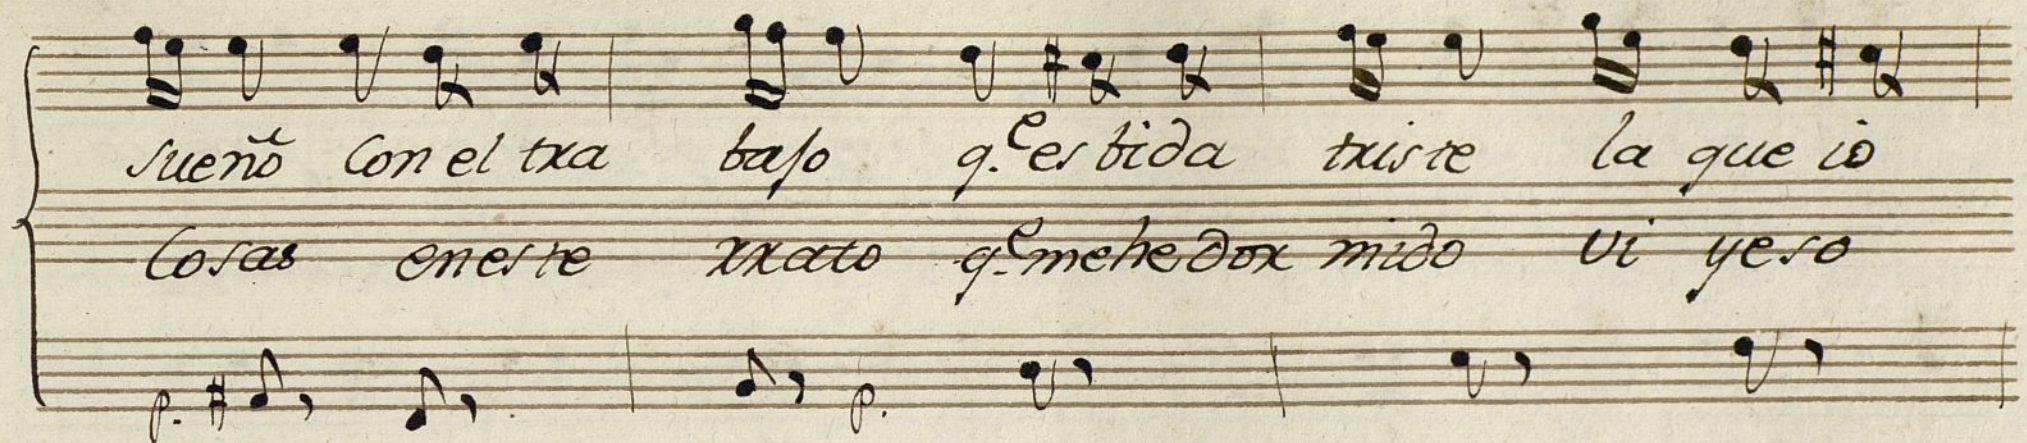 sueño Con el tra bajo q.e es bida triste la que io
Cosas en este rrato q.e me he dor mido vi y eso
p. p.